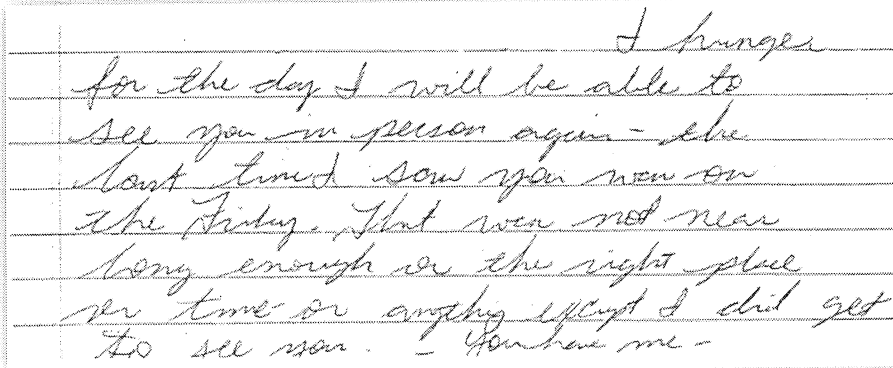 I hunger
for the day I will be able to
see you in person again - the
last time I saw you was on
the Friday. That was not near
long enough or the right place
or time or anything except I did get
to see you. - You have me -